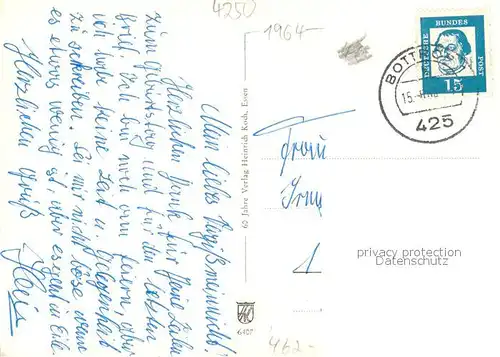 4250
1964-
Mein liebes Vergißmeinnicht!
Herzlichen Dank für Deine Zeilen
zum Geburtstag und für den lieben
Brief. Ich bin noch am feiern, aber
ich habe keine Zeit u. Gelegenheit
zu schreiben. Sei mir nicht böse wenn
es etwas wenig ist, aber es ist in Eile
Herzlichen Gruß
60 Jahre Verlag Heinrich Koch, Essen
6407
DEUTSCHE
BUNDES
POST
15
BOTT
15.
425
Frau
Irma
1
privacy protection
Datenschutz
462-